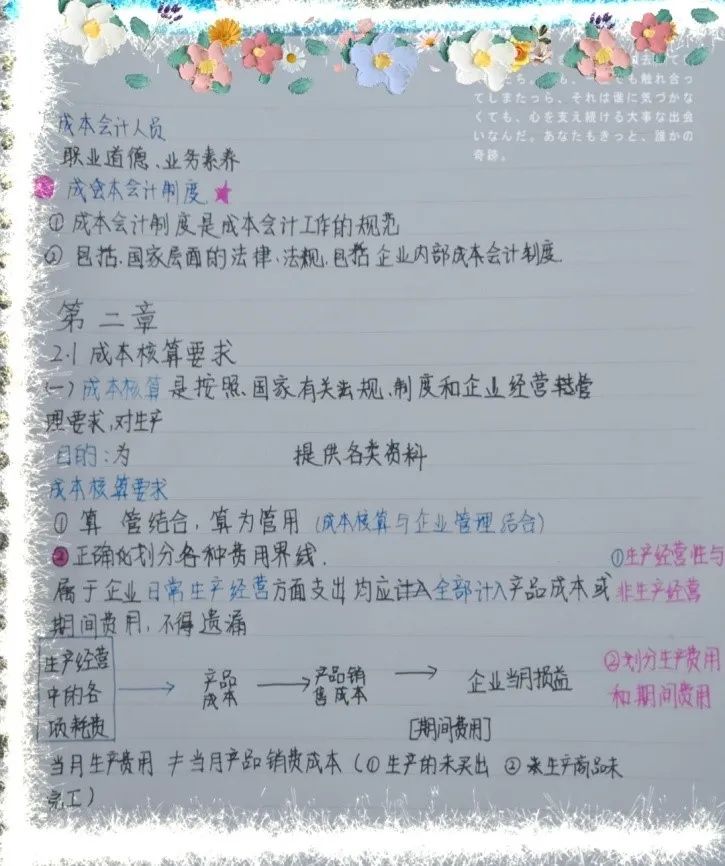 触れ合っ
てしまたっら、それは誰に気づかな
くても、心を支え続ける大事な出会
いなんだ。あなたもきっと、誰かの
奇跡。
成本会计人员
职业道德、业务素养
成本会计制度
① 成本会计制度是成本会计工作的规范
② 包括、国家层面的法律、法规、包括企业内部成本会计制度
第二章
2.1 成本核算要求
(一) 成本核算是按照、国家有关法规、制度和企业经营管
理要求,对生产
目的:为 提供各类资料
成本核算要求
① 算 管结合,算为管用 (成本核算与企业管理结合)
② 正确化划分各种费用界线.
① 生产经营性与
非生产经营
属于企业日常生产经营方面支出均应计入全部计入产品成本或
期间费用,不得遗漏
② 划分生产费用
和期间费用
生产经营
中的各
项耗费
产品
成本
产品销
售成本
企业当月损益
[期间费用]
当月生产费用 ≠ 当月产品销费成本 (① 生产的未买出 ② 生产商品未
完工)